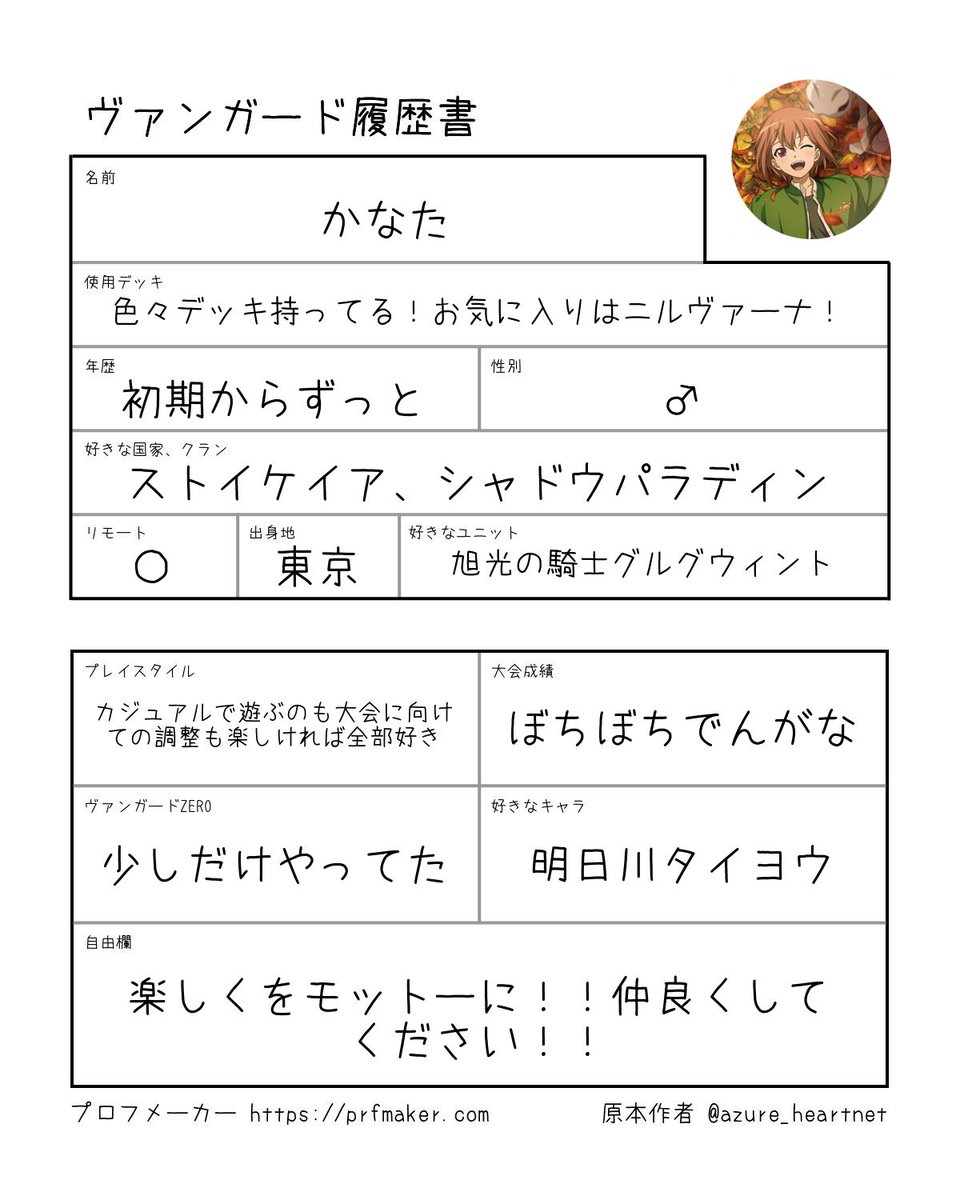 ヴァンガード履歴書
名前
かなた
使用デッキ
色々デッキ持ってる！お気に入りはニルヴァーナ！
年歴
初期からずっと
性別
♂
好きな国家、クラン
ストイケイア、シャドウパラディン
リモート
○
出身地
東京
好きなユニット
旭光の騎士グルグウィント
プレイスタイル
カジュアルで遊ぶのも大会に向け
ての調整も楽しければ全部好き
大会成績
ぼちぼちでんがな
ヴァンガードZERO
少しだけやってた
好きなキャラ
明日川タイヨウ
自由欄
楽しくをモットーに！！仲良くして
ください！！
プロフメーカー https://prfmaker.com
原本作者 @azure_heartnet